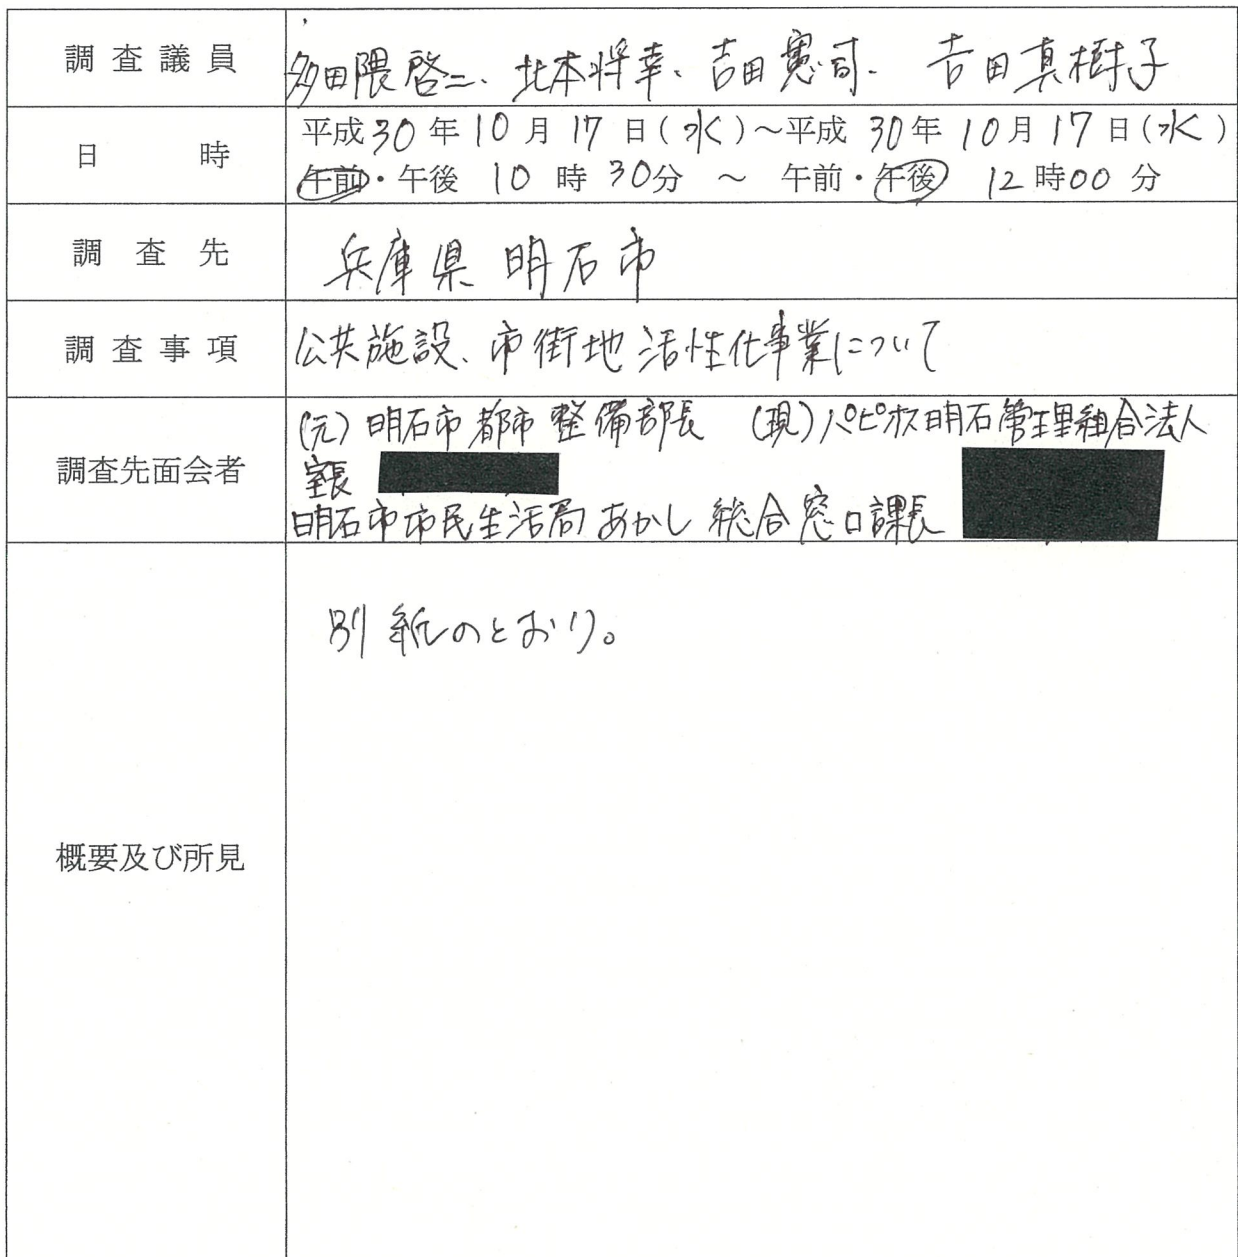 調査議員 多田隈啓二、北本将幸、吉田憲司、吉田真樹子
日時 平成30年10月17日(水)～平成30年10月17日(水)
午前・午後 10時30分 ～ 午前・午後 12時00分
調査先 兵庫県 明石市
調査事項 公共施設、市街地活性化事業について
(元)明石市都市整備部長 (現)パピオス明石管理組合法人
調査先面会者 室長
明石市市民生活局あかし総合窓口課長
別紙のとおり。
概要及び所見